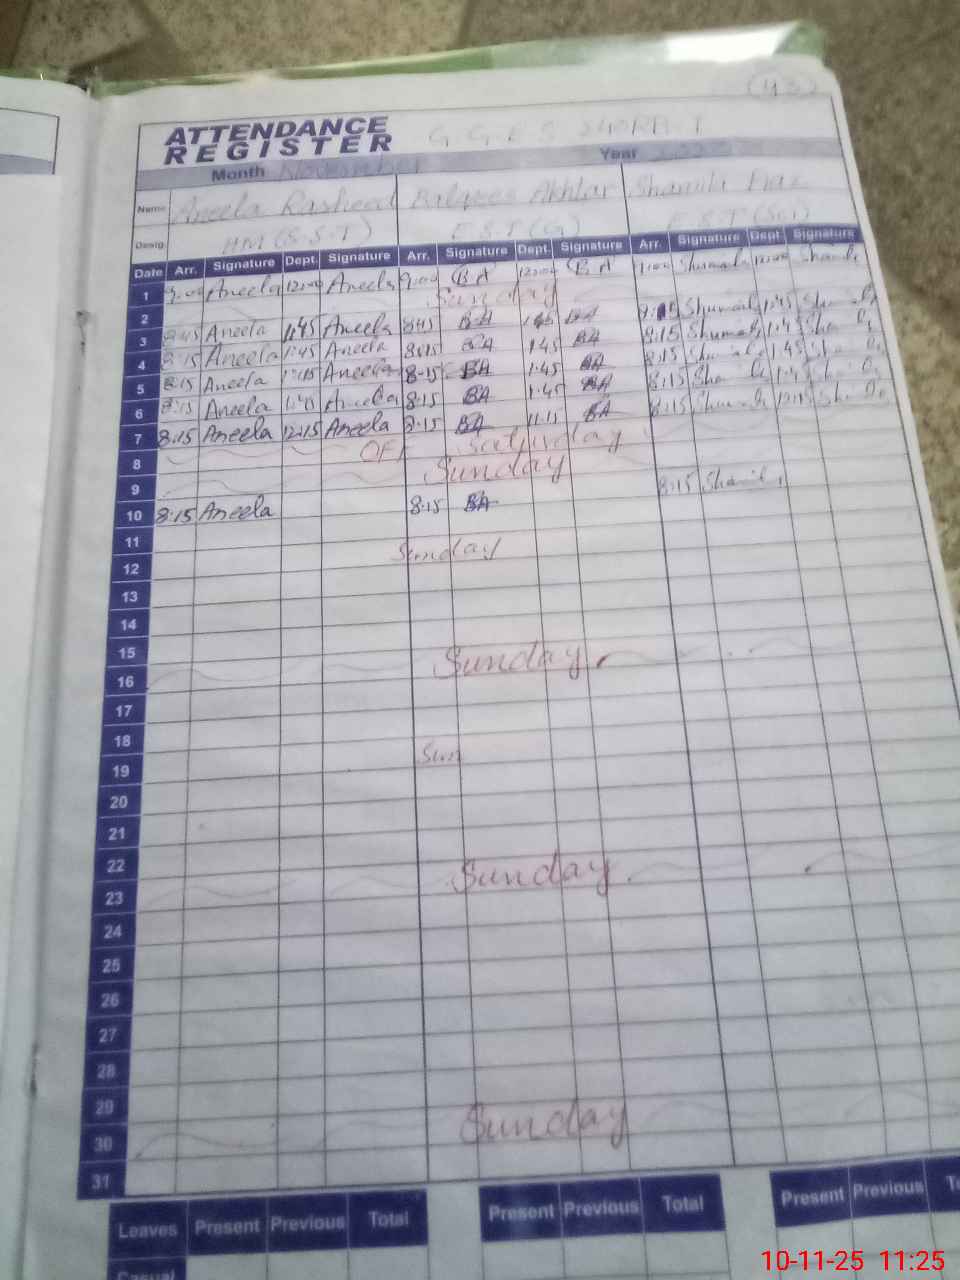 43
ATTENDANCE REGISTER G.G.E.S 540RB-I
Month November Year
Name Aneela Rasheed Balqees Akhtar Shamila
Desig. HM (S.S.T) E.S.T (G) E.S.T (Sci)
Date Arr. Signature Dept. Signature Arr. Signature Dept. Signature Arr. Signature Dept. Signature
1 9:00 Aneela 12:00 Aneela 9:00 B.A 12:00 B.A 9:00
2 Sunday
3 8:45 Aneela 1:45 Aneela 8:45 BA 1:45 BA
4 8:15 Aneela 1:45 Aneela 8:15 BA 1:45 BA 8:15 1:45
5 8:15 Aneela Aneela 8:15 BA 1:45 BA 8:15 1:45
6 8:15 Aneela 1:45 Aneela 8:15 BA 1:45 BA 8:15
7 8:15 Aneela 12:15 Aneela 8:15 BA BA 8:15
8 OFF Saturday
9 Sunday
10 8:15 Aneela 8:15 BA 8:15
11
12 Sunday
13
14
15
16 Sunday
17
18
19 Sun
20
21
22
23 Sunday
24
25
26
27
28
29
30 Sunday
31
Leaves Present Previous Total Present Previous Total Present Previous
Casual
10-11-25 11:25